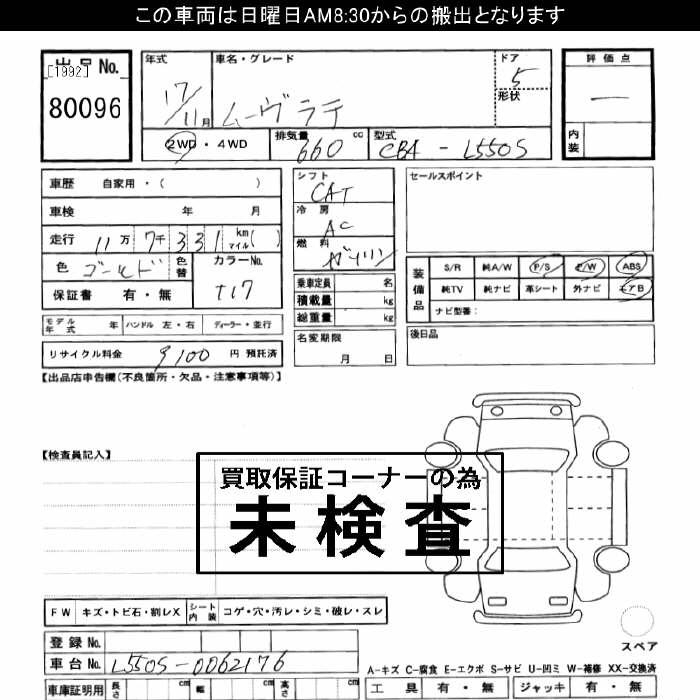 この車両は日曜日AM8:30からの搬出となります
出品No. 年式 車名・グレード ドア 評価点
[1992] 17 ムーヴラテ 5 —
80096 11月 形状
2WD・4WD 排気量 660 cc 型式 CBA - L550S 内装
車歴 自家用・( ) シフト CAT セールスポイント
車検 年 月 冷房 AC
走行 11万 7千 331 km マイル( ) 燃料 ガソリン
色 ゴールド 色替 カラーNo. T17 装備品 S/R 純A/W P/S P/W ABS
保証書 有・無 乗車定員 名 純TV 純ナビ 革シート 外ナビ エアB
積載量 kg ナビ型番:
モデル年式 年 ハンドル 左・右 ディーラー・並行 総重量 kg 後日品
リサイクル料金 9100 円 預託済 名変期限 月 日
【出品店申告欄(不良箇所・欠品・注意事項等)】
【検査員記入】
買取保証コーナーの為
未検査
FW キズ・トビ石・割レX シート内装 コゲ・穴・汚レ・シミ・破レ・スレ
登録No. スペア
車台No. L550S-0062176 A-キズ C-腐食 E-エクボ S-サビ U-凹ミ W-補修 XX-交換済
車庫証明用 長さ cm 幅 cm 高さ cm 工具 有・無 ジャッキ 有・無